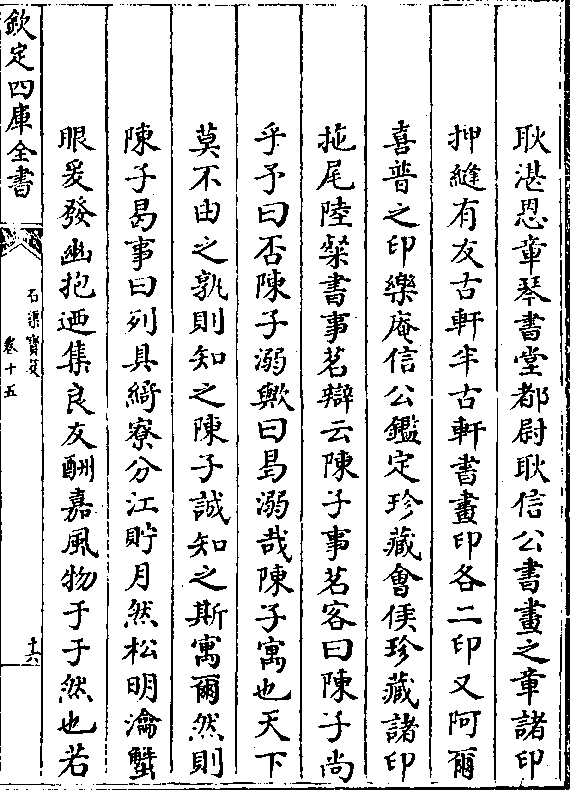 耿湛恩章琴書堂都尉耿信公書畫之章諸印
押縫有友古軒半古軒書畫印各二印又阿爾
喜普之印樂庵信公鑑定珍藏會侯珍藏諸印
拖尾陸粲書事茗辯云陳子事茗客曰陳子尚
乎予曰否陳子溺歟曰曷溺哉陳子寓也天下
莫不由之孰則知之陳子誠知之斯寓爾然則
陳子曷事曰列具綺寮分江貯月然松明瀹蟹
眼爰發幽抱廼集良友酬嘉風物于于然也若
欽定四庫全書
石渠寶笈
卷十五
十六